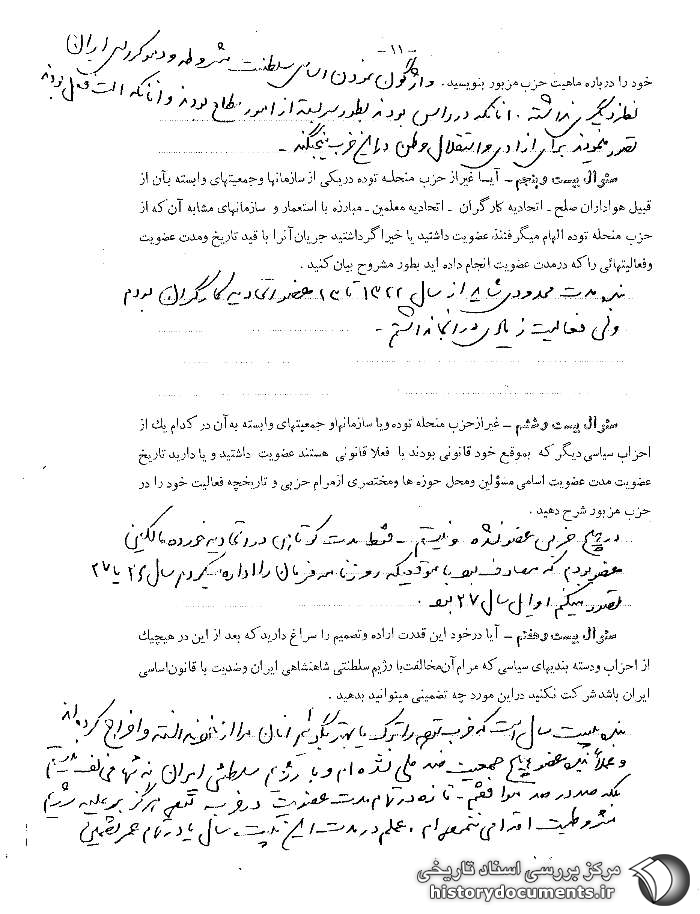 -۱۱-
خود را درباره ماهیت حزب مزبور بنویسید. واژگون نمودن اساس سلطنت مشروطه و دموکراسی ایران
نظر دیگری نداشته. آنانکه در راس بودند بطور سربسته از امور مطلع بودند و آنانکه آلت فعل بودند
تصور مینمودند برای آزادی و استقلال وطن در این حزب میجنگند -
سئوال بیست و پنجم - آیا غیر از حزب منحله توده در یکی از سازمانها و جمعیتهای وابسته بآن از
قبیل هواداران صلح - اتحادیه کارگران - اتحادیه معلمین - مبارزه با استعمار و سازمانهای مشابه آن که از
حزب منحله توده الهام میگرفتند عضویت داشتید یا خیر اگر داشتید جریان آنرا با قید تاریخ ومدت عضویت
وفعالیتهائی را که درمدت عضویت انجام داده اید بطور مشروح بیان کنید .
بنده مدت محدودی شاید از سال ۱۳۲۲ تا ۲۳ عضو اتحادیه کارگران بودم
ولی فعالیت زیادی در آنجا نداشتم -
سئوال بیست و ششم - غیر از حزب منحله توده ویا سازمانهاو جمعیتهای وابسته به آن در کدام یك از
احزاب سیاسی دیگر که بموقع خود قانونی بودند یا فعلا قانونی هستند عضویت داشتید و یا دارید تاریخ
عضویت مدت عضویت اسامی مسؤلین ومحل حوزه ها ومختصری ازمرام حزبی و تاریخچه فعالیت خود را در
حزب مزبور شرح دهید .
در هیچ حزبی عضو نشده و نیستم - فقط مدت کوتاهی در اتحادیه خرده مالکین
عضو بودم که مصادف بود با موقعیکه روزنامه فرمان را اداره میکردم سال ۲۶ یا ۲۷
تصور میکنم اوایل سال ۲۷ بود .
سئوال بیست و هفتم - آیا درخود این قدرت اراده وتصمیم را سراغ دارید که بعد از این در هیچیك
از احزاب ودسته بندیهای سیاسی که مرام آن مخالفت با رژیم سلطنتی شاهنشاهی ایران وضدیت با قانون اساسی
ایران باشد شرکت نکنید دراین مورد چه تضمینی میتوانید بدهید .
بنده بیست سال است که حزب توده را ترک یا بهتر بگویم آنان مرا از خود ندانسته و اخراج کرده اند
و عملاً نیز عضو هیچ جمعیت ضد ملی نشده ام و با رژیم سلطنتی ایران نه تنها مخالف نیستم
بلکه صد در صد موافقم - تازه در تمام مدت عضویت در حزب توده هم هرگز بر علیه رژیم
مشروطیت اقدامی ننموده ام . عملم در مدت این بیست سال یا در تمام عمر تضمین
مرکز بررسی اسناد تاریخی
historydocuments.ir